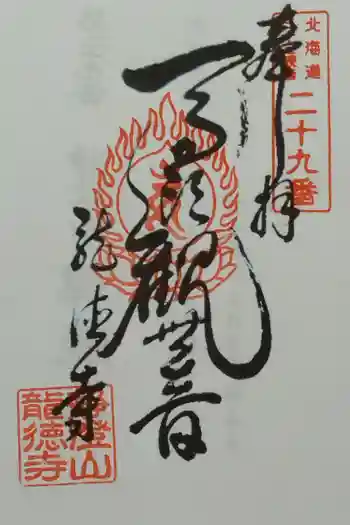 北海道
二十九番
奉拝
觀世音
龍徳寺
澄山
龍徳寺